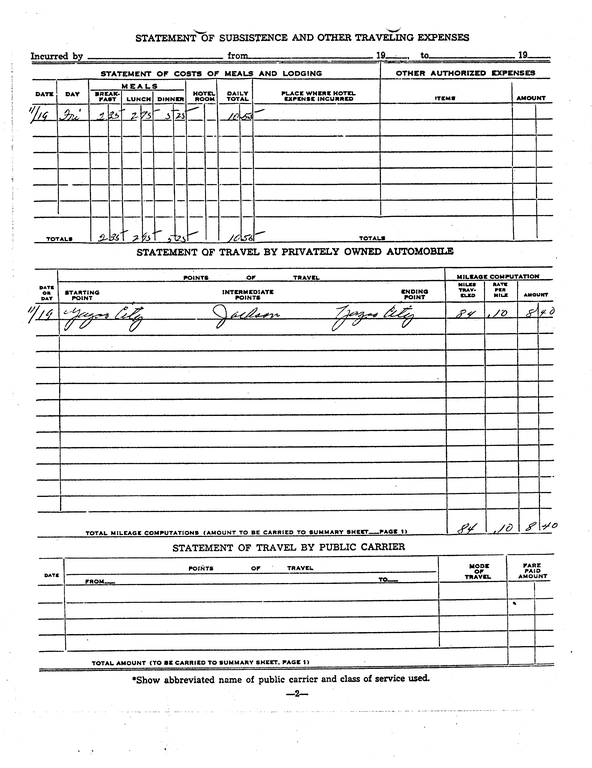 STATEMENT OF SUBSISTENCE AND OTHER TRAVELING EXPENSES
Incurred by from 19 , to 19
STATEMENT OF COSTS OF MEALS AND LODGING OTHER AUTHORIZED EXPENSES
DATE DAY MEALS BREAK-FAST LUNCH DINNER HOTEL ROOM DAILY TOTAL PLACE WHERE HOTEL EXPENSE INCURRED ITEMS AMOUNT
11/19 Fri 2 35 2 95 5 25 10 55
TOTALS 2 35 2 95 5 25 10 55 TOTALS
STATEMENT OF TRAVEL BY PRIVATELY OWNED AUTOMOBILE
POINTS OF TRAVEL MILEAGE COMPUTATION
DATE OR DAY STARTING POINT INTERMEDIATE POINTS ENDING POINT MILES TRAV-ELED RATE PER MILE AMOUNT
11/19 Yazoo City Jackson Yazoo City 84 .10 8 40
TOTAL MILEAGE COMPUTATIONS (AMOUNT TO BE CARRIED TO SUMMARY SHEET PAGE 1) 84 .10 8 40
STATEMENT OF TRAVEL BY PUBLIC CARRIER
DATE POINTS OF TRAVEL MODE OF TRAVEL FARE PAID AMOUNT
FROM TO
TOTAL AMOUNT (TO BE CARRIED TO SUMMARY SHEET, PAGE 1)
*Show abbreviated name of public carrier and class of service used.
—2—